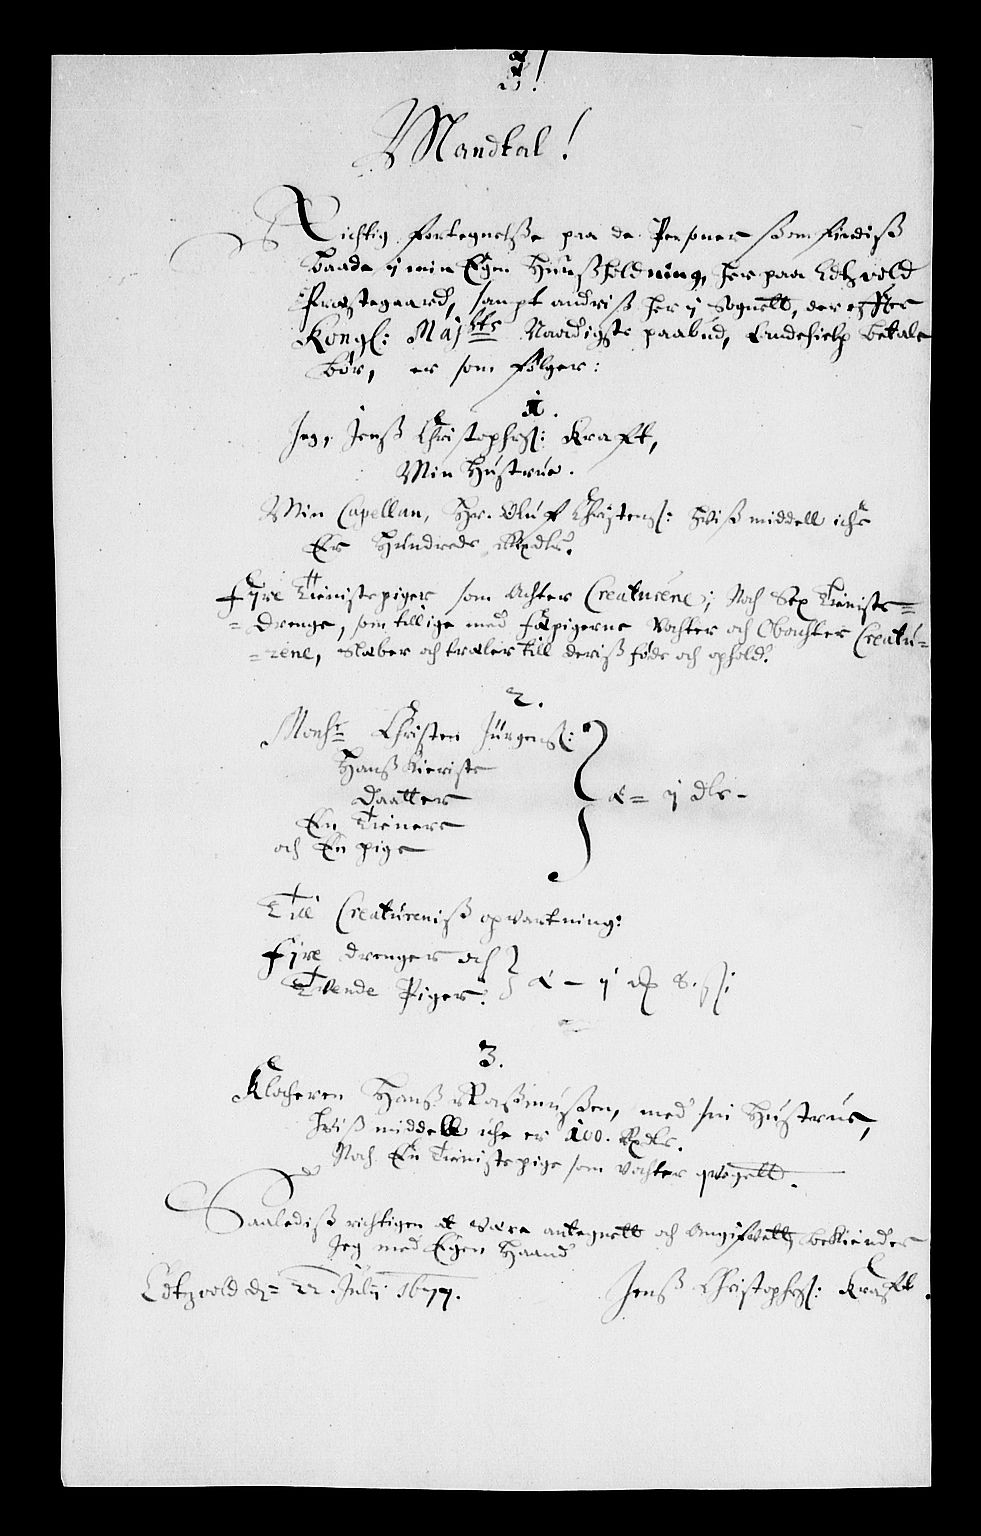 Mandtal!
Richtig fortegnelsse paa de Personer ssom findiss
baade y min Egen Huussholdning, her paa Edtzvold
Præstegaard, sampt andriss her y Sognett, der effter
Kongl: Maj:tts Naadigste paabud, Landehielp betale
bør, er som følger:
1.
Jeg, Jenss Christophers: Kraft,
Min Hustrue.
Min Capellan, Hr. Oluf Christens: hviss middell iche
Er Hundrede Rixdlr.
Fyre Tienistepiger som Achter Creaturene; Noch Sex Tieniste=
=drenge, som tillige med fæpigerne Vachter och Obachter Creatu-
=rene, Slæber och træler till deriss føde och ophold.
2.
Monsr Christen Jürgenss:
Hanss Kieriste
Daatter
En Tienere
och En pige
á = j dlr -
Till Creatureniss opvartning:
Fyre drenger och
Tvende Piger.
á - j 8. ss:
3.
Klocheren Hanss Rassmussen, med sin Hustrue,
hviss middell iche er 100. Rdlr.
Noch En Tienistepige som vachter qvegett.
Saalediss richtigen at være antegnett och Angifvett, bekiender
Jeg med Egen Haand
Edtzvold d: 22. July 1677.
Jenss Christophers: Kraft.